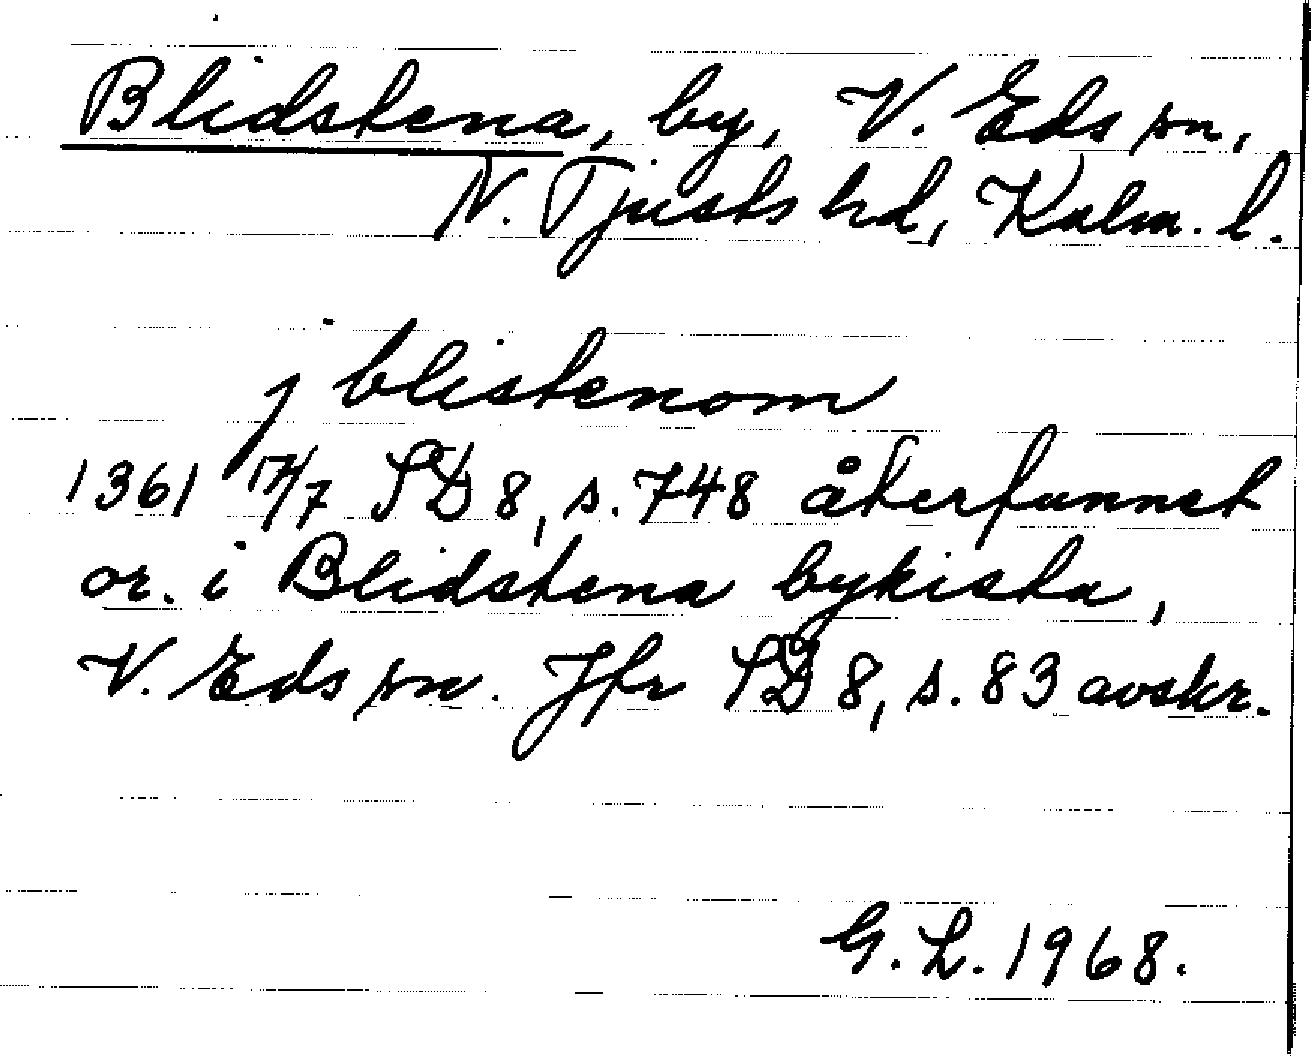 Blidstena, by, V. Eds sn,
N. Tjusts hd, Kalm. l.
j blistenom
1361 17/7 SD 8, s. 748 återfunnet
or. i Blidstena bykista,
V. Eds sn. Jfr SD 8, s. 83 avskr.
G. L. 1968.